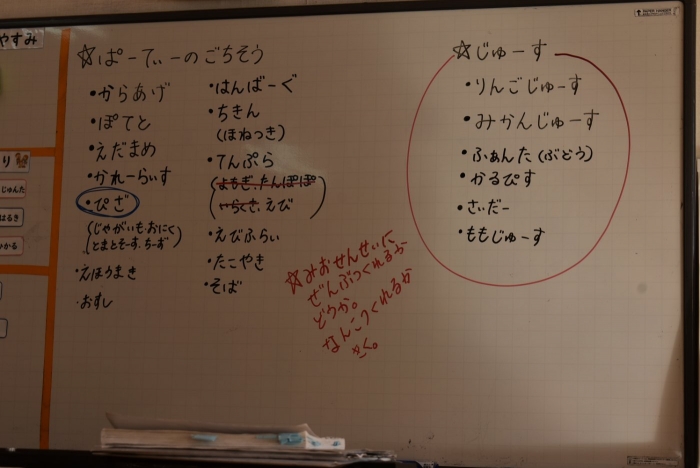 やすみ
り
じゅんた
はるき
ひかる
☆ぱーてぃーのごちそう
・からあげ
・ぽてと
・えだまめ
・かれーらいす
・ぴざ
(じゃがいも・おにく
とまとそーす、ちーず)
・えほうまき
・おすし
・はんばーぐ
・ちきん
(ほねつき)
・てんぷら
(よもぎ、たんぽぽ
えび)
・えびふらい
・たこやき
・そば
☆みおせんせいに
ぜんぶつくれるか
どうか。
なんこつくれるか
きく。
☆じゅーす
・りんごじゅーす
・みかんじゅーす
・ふぁんた(ぶどう)
・かるぴす
・さいだー
・ももじゅーす